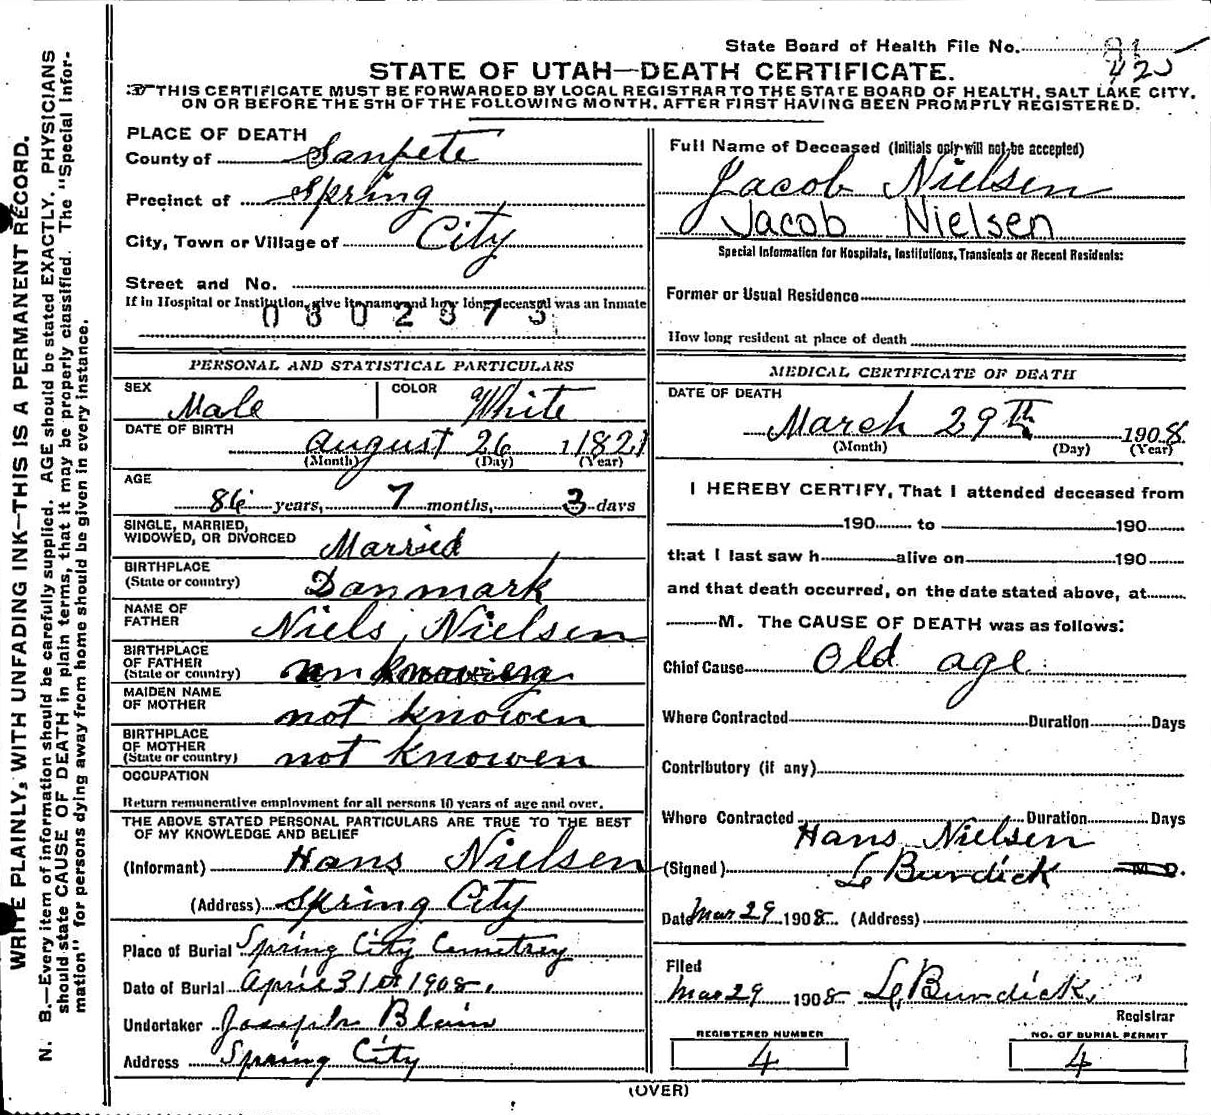 State Board of Health File No. 91
425
STATE OF UTAH—DEATH CERTIFICATE.
THIS CERTIFICATE MUST BE FORWARDED BY LOCAL REGISTRAR TO THE STATE BOARD OF HEALTH, SALT LAKE CITY,
ON OR BEFORE THE 5TH OF THE FOLLOWING MONTH, AFTER FIRST HAVING BEEN PROMPTLY REGISTERED.
WRITE PLAINLY, WITH UNFADING INK—THIS IS A PERMANENT RECORD.
N. B.—Every item of information should be carefully supplied. AGE should be stated EXACTLY. PHYSICIANS
should state CAUSE OF DEATH in plain terms, that it may be properly classified. The "Special Infor-
mation" for persons dying away from home should be given in every instance.
PLACE OF DEATH
County of Sanpete
Precinct of Spring
City, Town or Village of City
Street and No.
If in Hospital or Institution, give its name and how long deceased was an Inmate
0302373
PERSONAL AND STATISTICAL PARTICULARS
SEX Male COLOR White
DATE OF BIRTH august 26 1821
(Month) (Day) (Year)
AGE
86 years, 7 months, 3 days
SINGLE, MARRIED,
WIDOWED, OR DIVORCED Married
BIRTHPLACE
(State or country) Danmark
NAME OF
FATHER Niels Nielsen
BIRTHPLACE
OF FATHER
(State or country)
MAIDEN NAME
OF MOTHER not knowen
BIRTHPLACE
OF MOTHER
(State or country) not knowen
OCCUPATION
Return remunerative employment for all persons 10 years of age and over.
THE ABOVE STATED PERSONAL PARTICULARS ARE TRUE TO THE BEST
OF MY KNOWLEDGE AND BELIEF
(Informant) Hans Nielsen
(Address) Spring City
Place of Burial Spring City Cemetrey
Date of Burial April 31st 1908.
Undertaker Joseph Blain
Address Spring City
Full Name of Deceased (Initials only will not be accepted)
Jacob Nielsen
Jacob Nielsen
Special Information for Hospitals, Institutions, Transients or Recent Residents:
Former or Usual Residence
How long resident at place of death
MEDICAL CERTIFICATE OF DEATH
DATE OF DEATH
March 29th 1908
(Month) (Day) (Year)
I HEREBY CERTIFY, That I attended deceased from
190 to 190
that I last saw h alive on 190
and that death occurred, on the date stated above, at
M. The CAUSE OF DEATH was as follows:
Chief Cause Old age
Where Contracted Duration Days
Contributory (if any)
Where Contracted Duration Days
Hans Nielsen
(Signed) L Burdick M D.
Date Mar 29 1908 (Address)
Filed
Mar 29 1908 L Burdick
Registrar
REGISTERED NUMBER
4
NO. OF BURIAL PERMIT
4
(OVER)